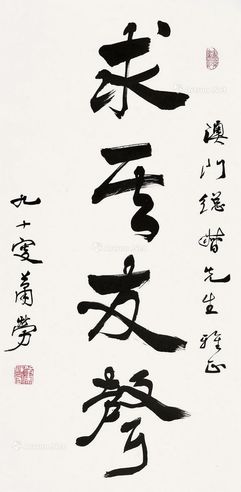 澳門總督先生雅正
求其友聲
九十叟蕭勞